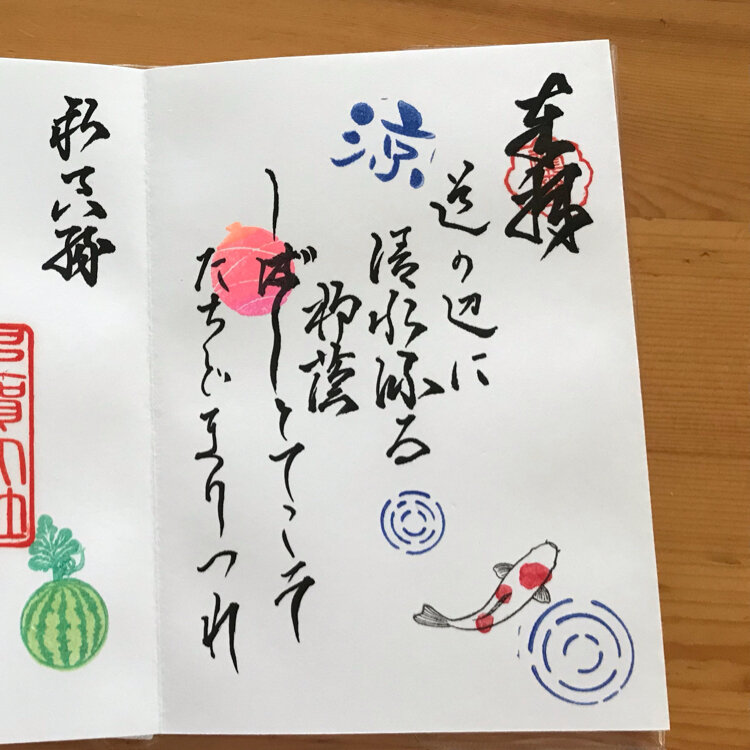 奉拝
道の辺に
涼
清水流る
柳蔭
しばしとてこそ
たちどまりつれ